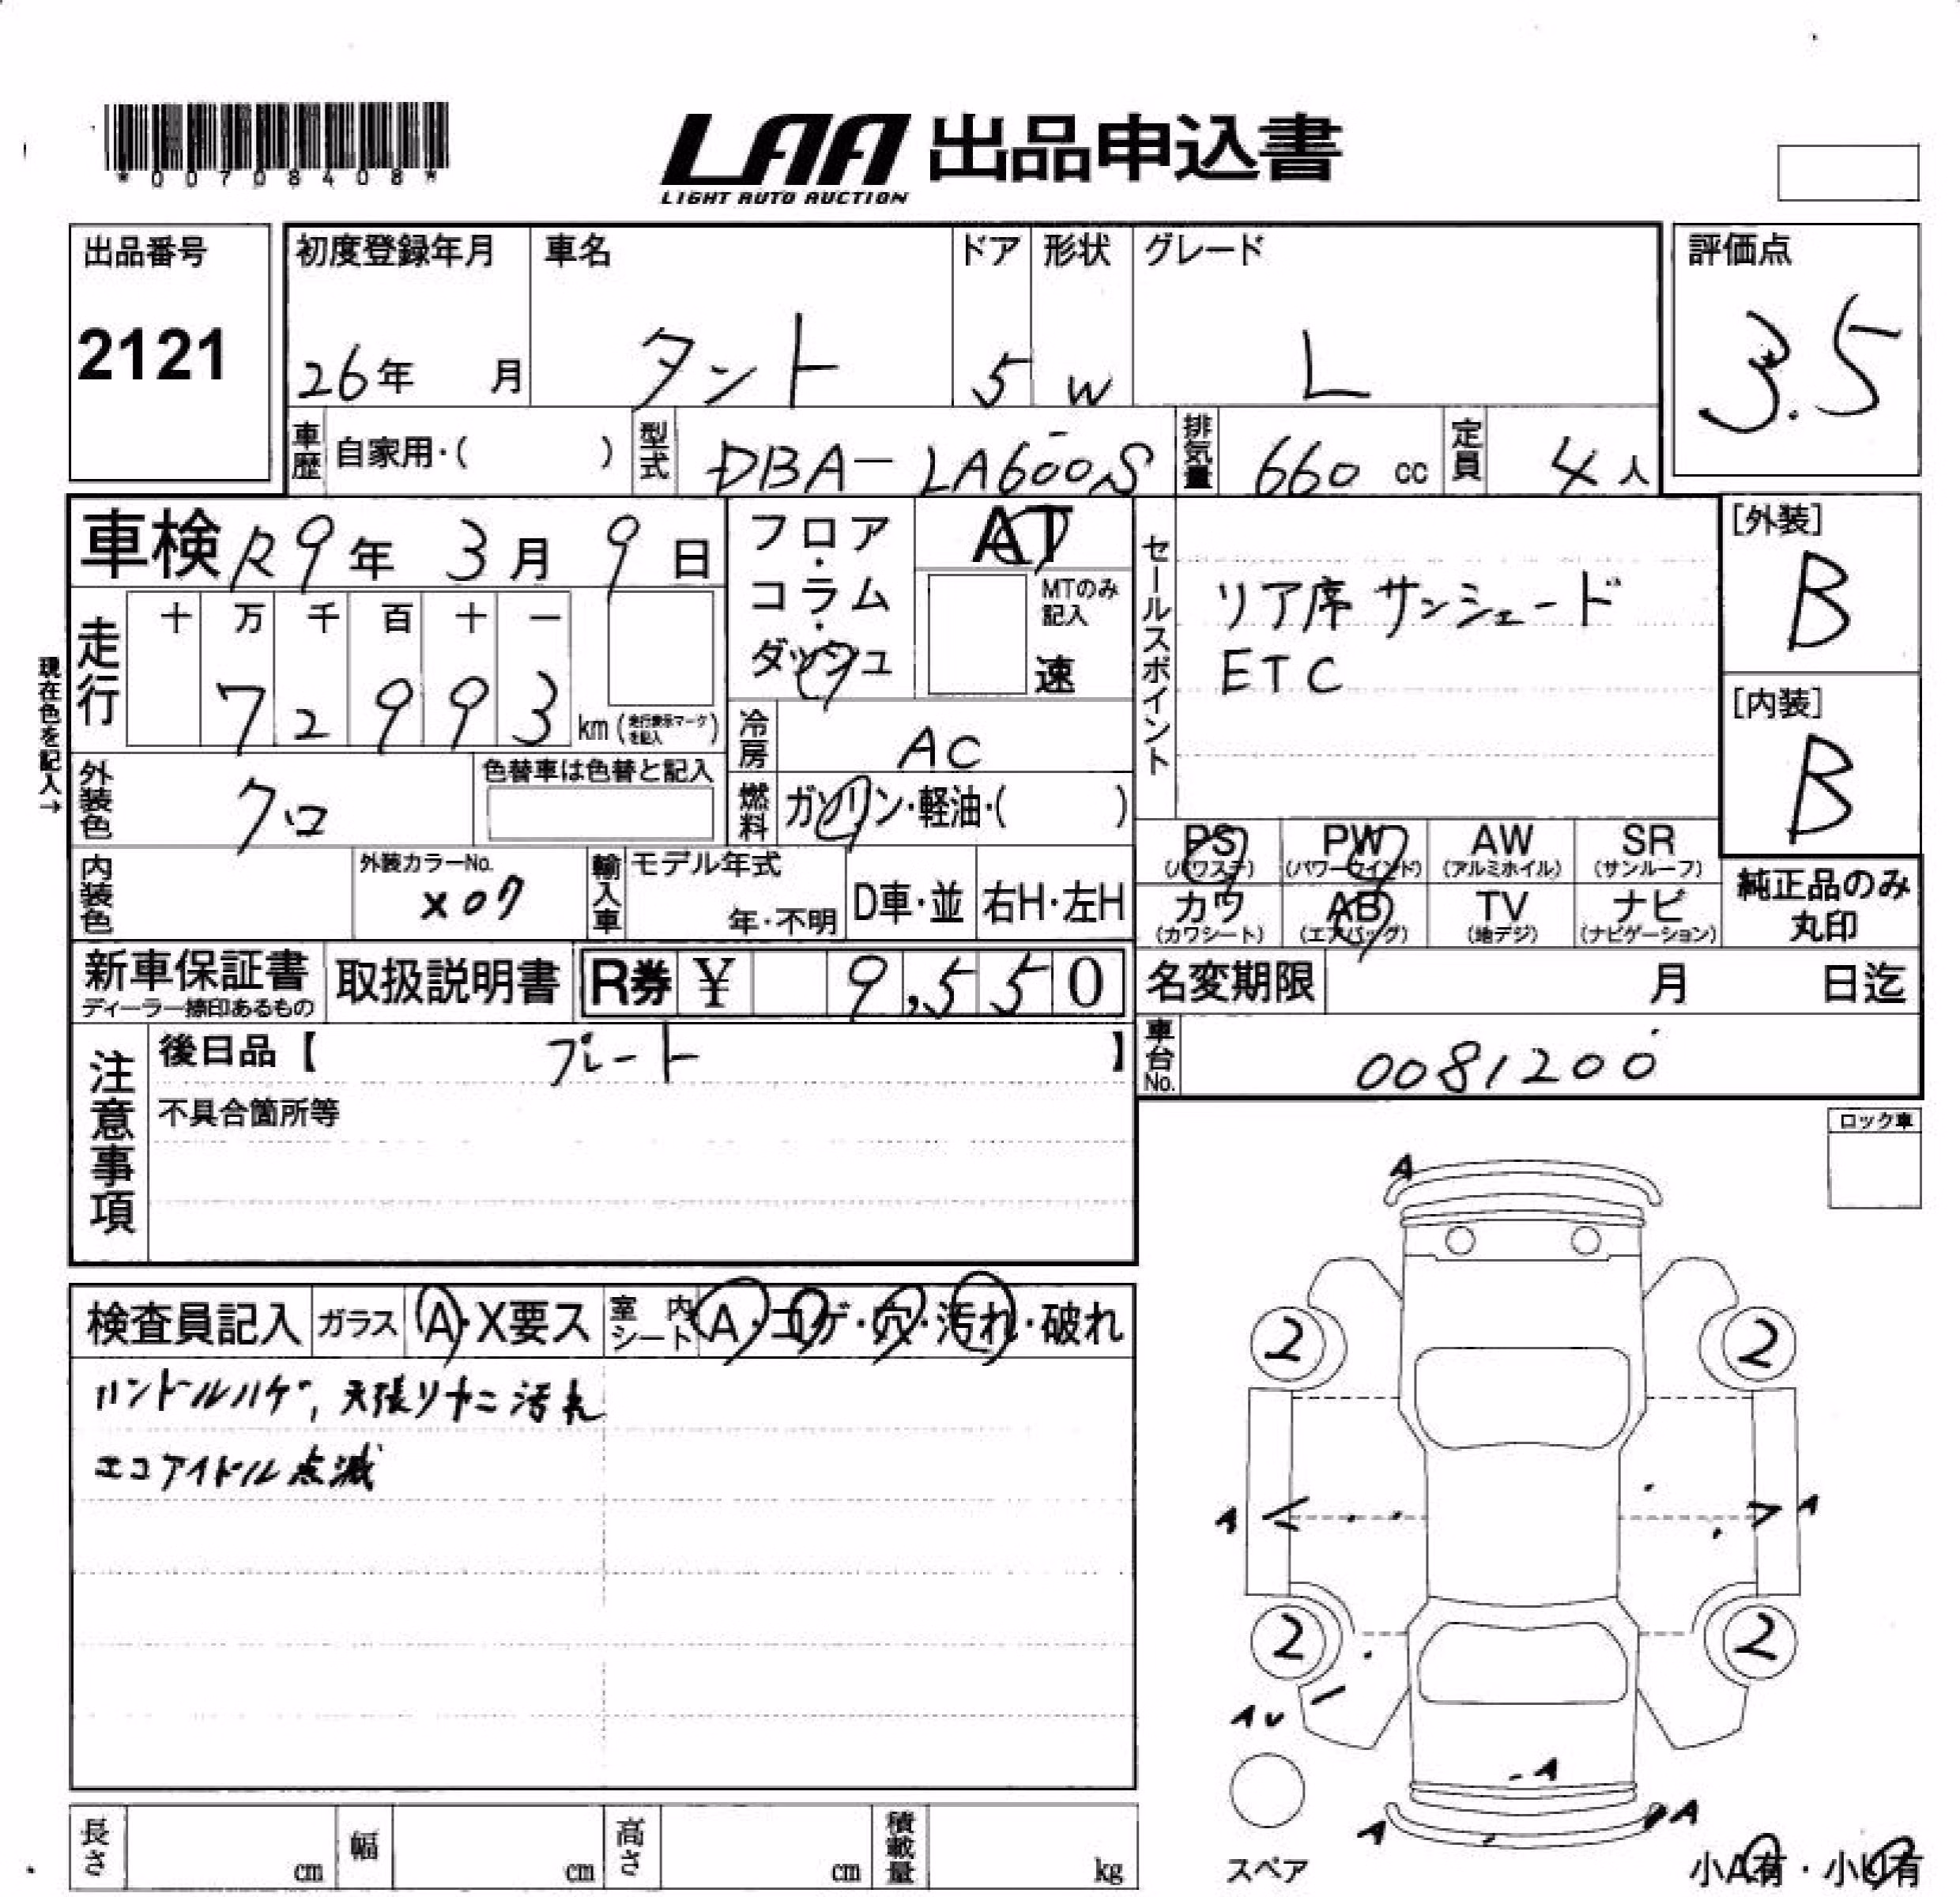 *00708408*
LAA 出品申込書
LIGHT AUTO AUCTION
出品番号
2121
初度登録年月
26年 月
車名
タント
ドア
5
形状
W
グレード
L
評価点
3.5
車歴 自家用・( )
型式 DBA-LA600S
排気量 660 cc
定員 4 人
車検 R9年 3月 9日
現在色を記入→
走行
十 万 千 百 十 一
7 2 9 9 3 km (走行表示マークを記入)
フロア・コラム・ダッシュ
AT
MTのみ記入
速
冷房 AC
燃料 ガソリン・軽油・( )
セールスポイント
リア席サンシェード
ETC
[外装]
B
[内装]
B
外装色 クロ
色替車は色替と記入
内装色
外装カラーNo.
X07
輸入車
モデル年式
年・不明
D車・並
右H・左H
PS (パワステ)
PW (パワーウインド)
AW (アルミホイル)
SR (サンルーフ)
カワ (カワシート)
AB (エアバッグ)
TV (地デジ)
ナビ (ナビゲーション)
純正品のみ丸印
新車保証書
ディーラー捺印あるもの
取扱説明書
R券 ¥ 9,550
名変期限 月 日迄
車台No. 0081200
注意事項
後日品【 プレート 】
不具合箇所等
ロック車
検査員記入
ガラス A・X要ス
室内シート A・コゲ・穴・汚れ・破れ
ハンドルハゲ, 天張リヤニ汚れ
エコアイドル点滅
A
2 2
A A
2 2
AU
A
A A
スペア
小A有・小U有
長さ cm
幅 cm
高さ cm
積載量 kg